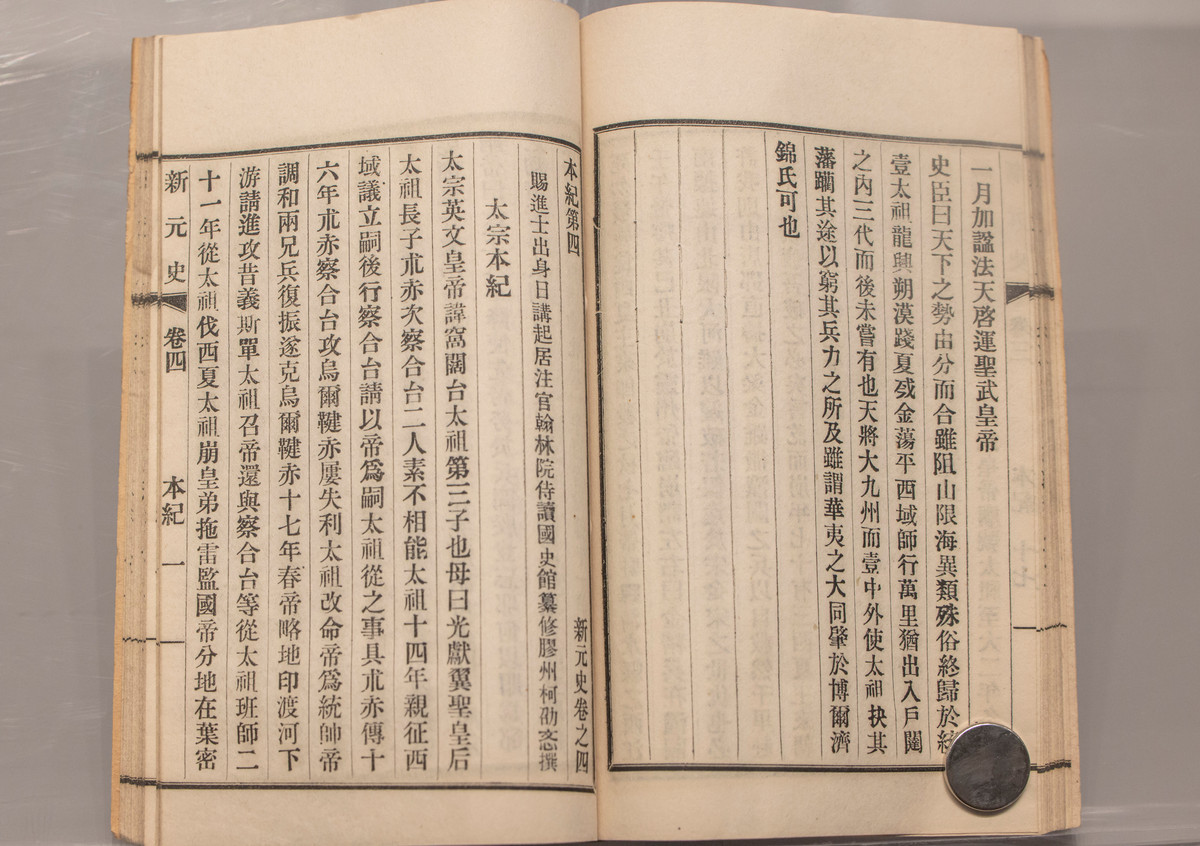 一月加諡法天啓運聖武皇帝
史臣曰天下之勢由分而合雖阻山限海異類殊俗終歸於統
壹太祖龍興朔漠踐夏戔金蕩平西域師行萬里猶出入戶闥
之內三代而後未嘗有也天將大九州而壹中外使太祖抉其
藩躪其途以窮其兵力之所及雖謂華夷之大同肇於博爾濟
錦氏可也
本紀第四 新元史卷之四
賜進士出身日講起居注官翰林院侍讀國史館纂修膠州柯劭忞撰
太宗本紀
太宗英文皇帝諱窩闊台太祖第三子也母曰光獻翼聖皇后
太祖長子朮赤次察合台二人素不相能太祖十四年親征西
域議立嗣後行察合台請以帝爲嗣太祖從之事具朮赤傳十
六年朮赤察合台攻烏爾鞬赤屢失利太祖改命帝爲統帥帝
調和兩兄兵復振遂克烏爾鞬赤十七年春帝略地印渡河下
游請進攻昔義斯單太祖召帝還與察合台等從太祖班師二
十一年從太祖伐西夏太祖崩皇弟拖雷監國帝分地在葉密
新元史 卷四 本紀 一